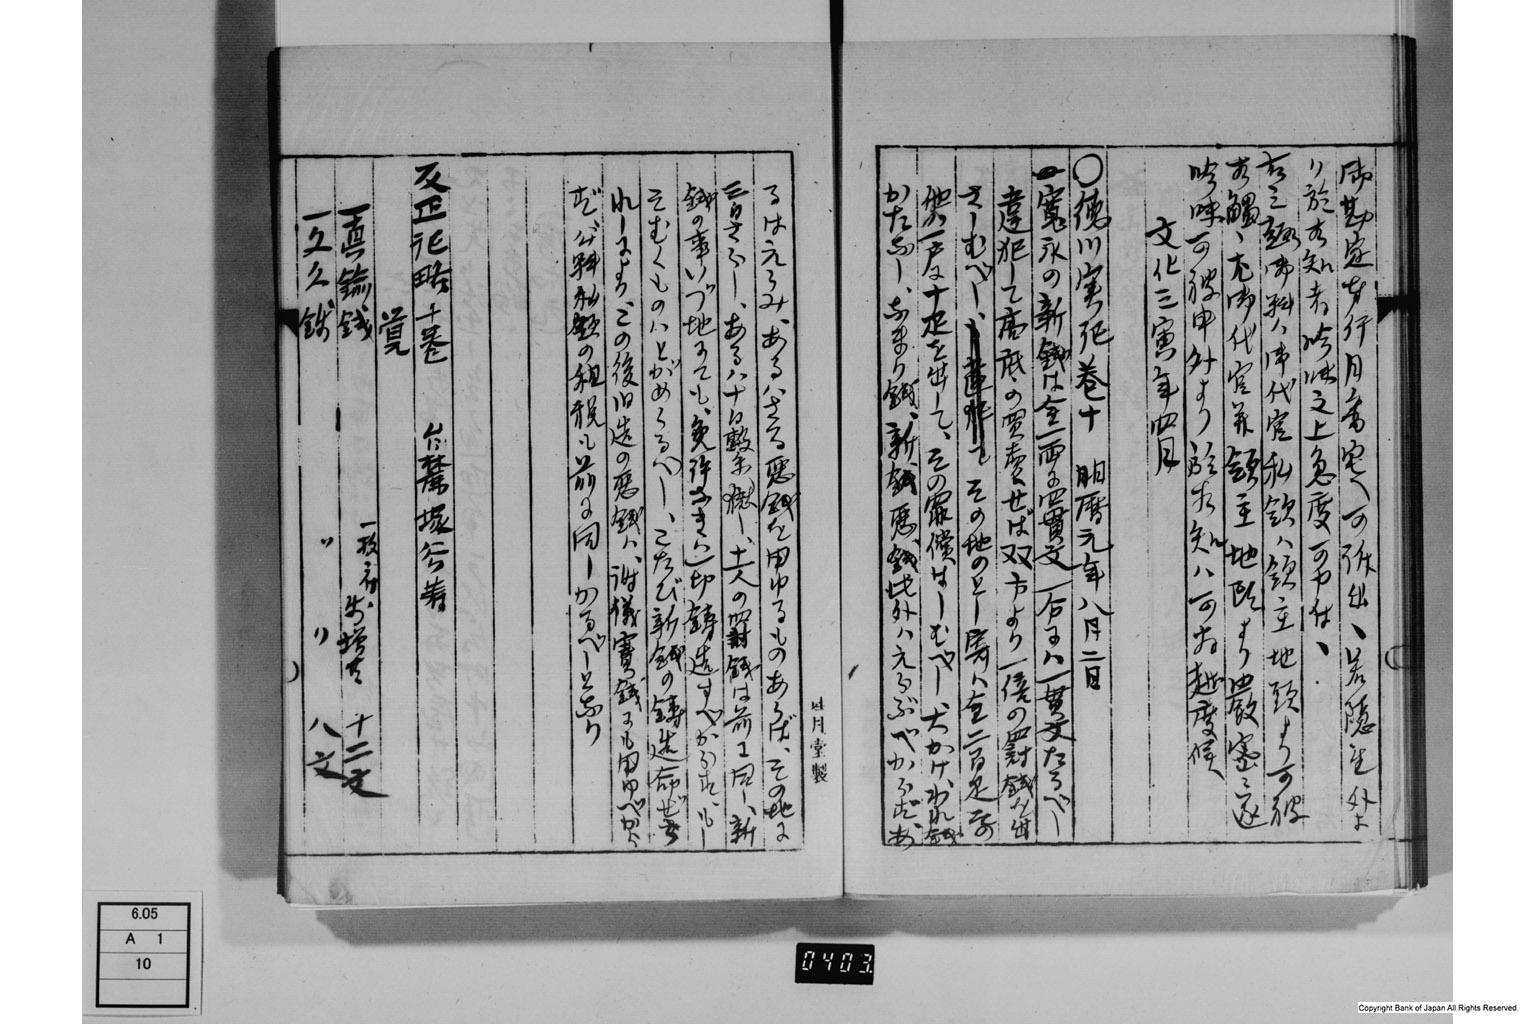 御勘定奉行月番宅へ可訴出、若隠置外よ
り於相知者吟味之上急度可申付、
右之趣御料ハ御代官私領ハ領主地頭より可被
相觸、尤御代官并領主地頭より厳密ニ遂
吟味可被申付より 相知ハ可為越度候
文化三寅年四月
〇徳川実記巻十 明暦元年八月二日
一寛永の新銭は金一両に四貫文一分にハ一貫文たるべし
違犯して高低の買売せば双方より一倍の罰銭を出
さしむべし、その地のとし寄ハ金二百疋
他ハ一戸に十疋を出して、その罪償はしむべし、大かけ、われ銭
かたなし、なまり銭、新銭悪銭此外ハえらぶべからず、
るはえらみ、あるハさる悪銭を用ゆるものあらば、その地に
三日さらし、あるハ十日繋獄し、十人の罰銭は前に同し、新
銭の事いづ地にても、免許なきハ一切鋳造すべからず、もし
そむくものハとがめらるべし、こたび新銭の鋳造命ぜら
れしにより、この後旧造の悪銭ハ、謝儀賽銭にも用ゆべから
ず、公料私領の租税も前に同しかるべしとなり
反正紀略十巻 塚公寿
覚
一真鍮銭 一枚ニ付、 十二文
一文久銭 〃 〃 八文
月堂製
0403
6.05
A 1
10
Copyright Bank of Japan All Rights Reserved.